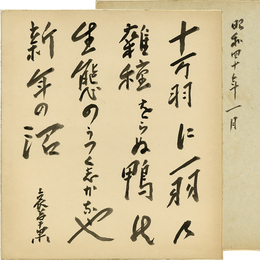 昭和四十年一月
十万羽に一羽の
雜種をらぬ鴨の
生態のうつくしかなや
新年の沼
哀草果